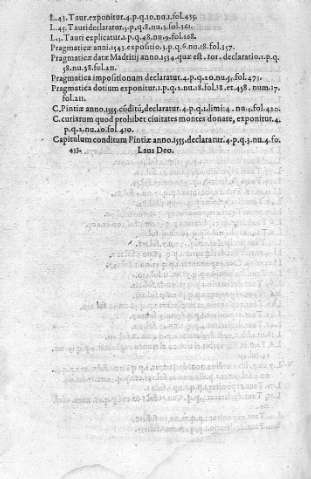 L.43. Taur. exponitur.4.p.q.10.nu.1.fol.439.
L.45. Tauri declaratur.3.p.q.8.nu.2.fol.321.
L.53. Tauri explicatur.2.p.q.48.nu.9.fol.208.
Pragmaticæ anni.1543.expositio.3.p.q.6.nu.18.fol.257.
Pragmaticæ datæ Madritij anno.1534.quæ est.tot.declaratio.1.p.q.
58.nu.58.fol.211.
Pragmatica impositionum declaratur.4.p.q.20.nu.5.fol.473.
Pragmatica dotium exponitur.1.p.q.2.nu.18.fol.18.et.458.num.17.
fol.211.
C. Pintiæ anno.155. cōditū, declaratur.4.p.q.1.limi.4.nu.5.fol.420.
C. curiarum quod prohibet ciuitates montes donare, exponitur.4.
p.q.2.nu.10.fol.410.
Capitulum conditum Pintiæ anno.155.declaratur.4.p.q.3.nu.4.fo.
433. Laus Deo.